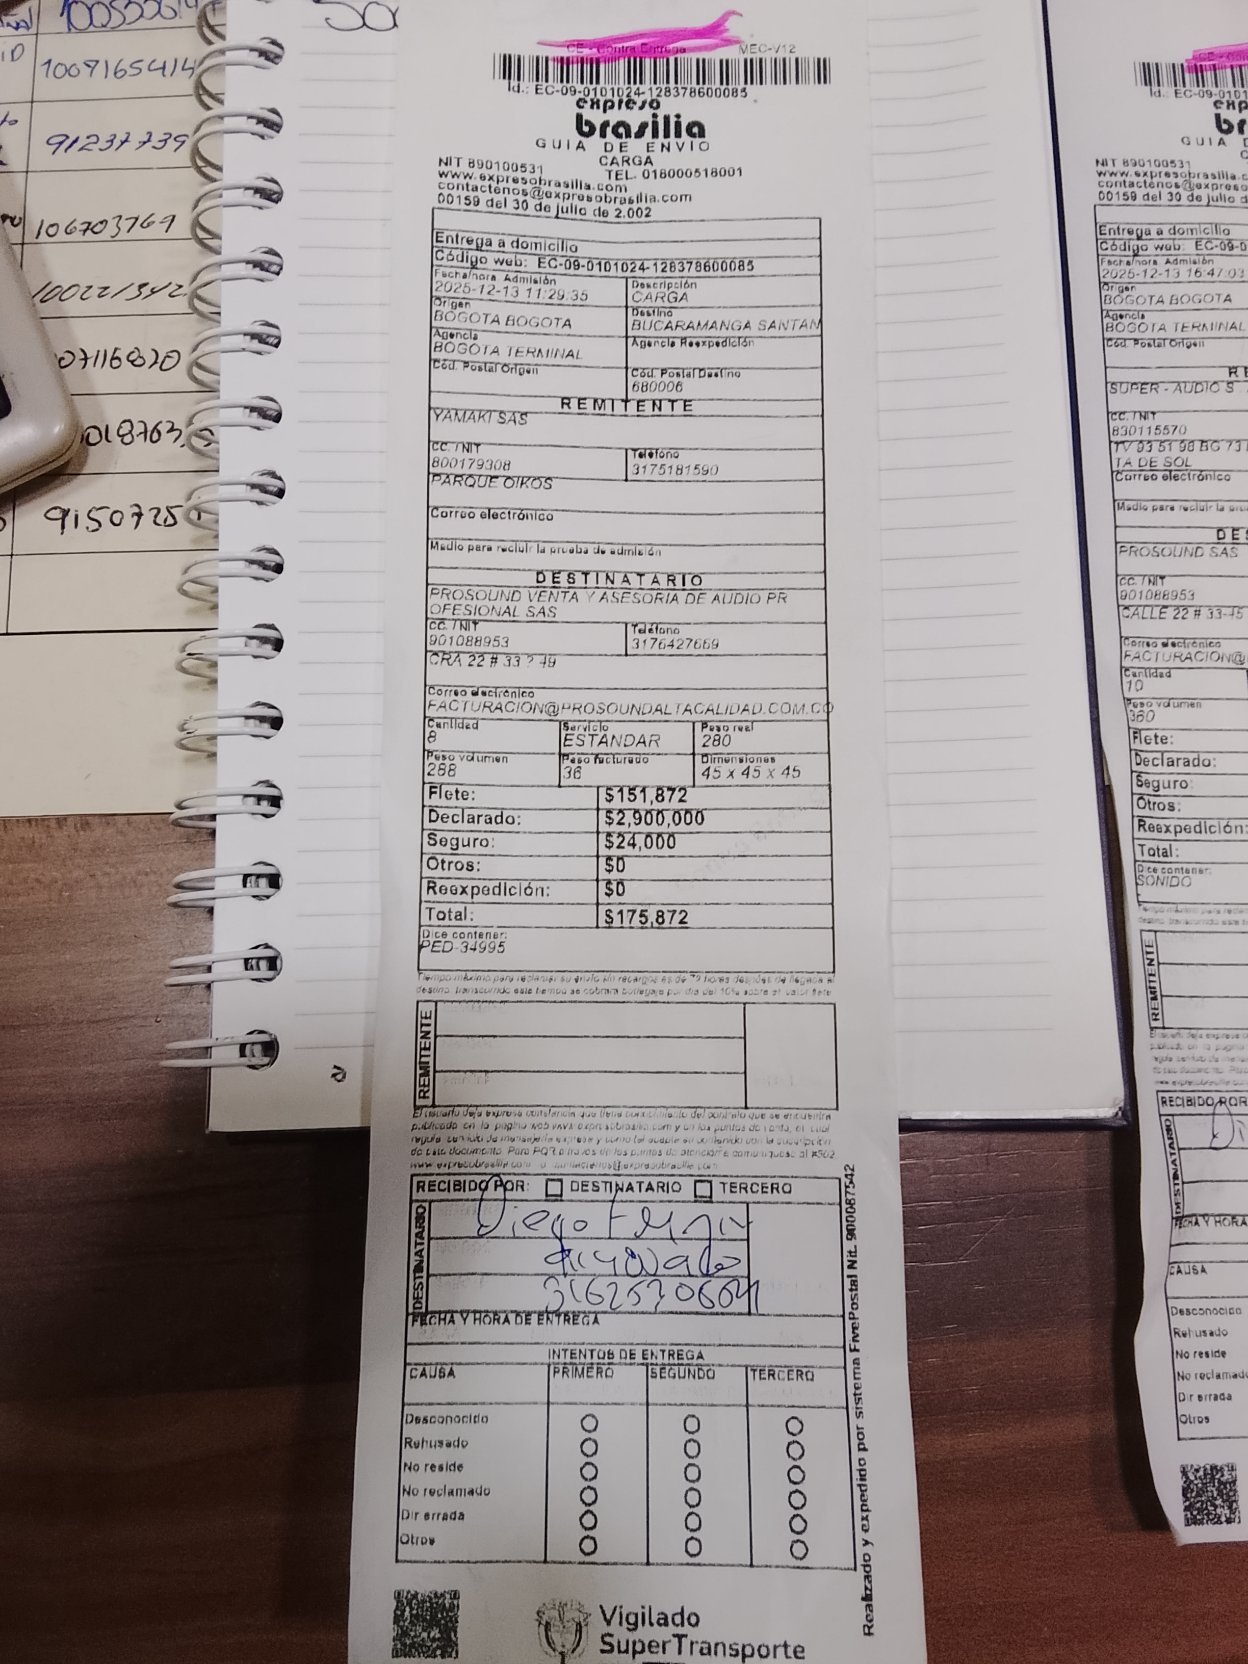 1009165414
91237739
106703769
07116820
018763
9150725
CE - Contra Entrega MEC-V12
Id.: EC-09-0101024-128378600085
expreso
brasilia
GUIA DE ENVIO
NIT 890100531 CARGA
www.expresobrasilia.com TEL. 018000518001
contactenos@expresobrasilia.com
00159 del 30 de julio de 2.002
Entrega a domicilio
Código web: EC-09-0101024-128378600085
Fecha/hora Admisión Descripción
2025-12-13 11:29:35 CARGA
Origen Destino
BOGOTA BOGOTA BUCARAMANGA SANTAN
Agencia Agencia Reexpedición
BOGOTA TERMINAL
Cód. Postal Origen Cód. Postal Destino
680006
REMITENTE
YAMAKI SAS
CC. / NIT Teléfono
800179308 3175181590
PARQUE OIKOS
Correo electrónico
Medio para recluir la prueba de admisión
DESTINATARIO
PROSOUND VENTA Y ASESORIA DE AUDIO PR
OFESIONAL SAS
CC. / NIT Teléfono
901088953 3176427669
CRA 22 # 33 ? 49
Correo electrónico
FACTURACION@PROSOUNDALTACALIDAD.COM.CO
Cantidad Servicio Peso real
8 ESTANDAR 280
Peso volumen Peso facturado Dimensiones
288 36 45 x 45 x 45
Flete: $151,872
Declarado: $2,900,000
Seguro: $24,000
Otros: $0
Reexpedición: $0
Total: $175,872
Dice contener:
PED-34995
Tiempo máximo para reclamar su envío sin recargos es de 72 horas después de llegada al
destino, transcurrido este tiempo se cobrara bodegaje por día del 10% sobre el valor flete
REMITENTE
El usuario deja expresa constancia que tiene conocimiento del contrato que se encuentra
publicado en la pagina web www.expresobrasilia.com y en los puntos de venta, el cual
regula servicio de mensajería expresa y como tal acepta su contenido con la suscripción
de este documento. Para PQR a través de los puntos de atención o comuniquese al #502
www.expresobrasilia.com o contactenos@expresobrasilia.com
RECIBIDO POR: DESTINATARIO TERCERO
DESTINATARIO
Diego
3162570664
FECHA Y HORA DE ENTREGA
INTENTOS DE ENTREGA
CAUSA PRIMERO SEGUNDO TERCERO
Desconocido
Rehusado
No reside
No reclamado
Dir errada
Otros
Realizado y expedido por sistema FivePostal Nit. 900087542
Vigilado
SuperTransporte
Id.: EC-09-0101
GUIA D
NIT 890100531
www.expresobrasilia.c
contactenos@expreso
00159 del 30 de julio d
Entrega a domicilio
Código web: EC-09-0
Fecha/hora Admisión
2025-12-13 16:47:03
Origen
BOGOTA BOGOTA
Agencia
BOGOTA TERMINAL
Cód. Postal Origen
RE
SUPER - AUDIO S
CC. / NIT
830115570
TV 93 51 98 BG 73
TA DE SOL
Correo electrónico
Medio para recluir la pru
DES
PROSOUND SAS
CC. / NIT
901088953
CALLE 22 # 33-45
Correo electrónico
FACTURACION@
Cantidad
10
Peso volumen
360
Flete:
Declarado:
Seguro:
Otros:
Reexpedición:
Total:
Dice contener:
SONIDO
REMITENTE
RECIBIDO POR
DESTINATARIO
FECHA Y HORA
CAUSA
Desconocido
Rehusado
No reside
No reclamado
Dir errada
Otros